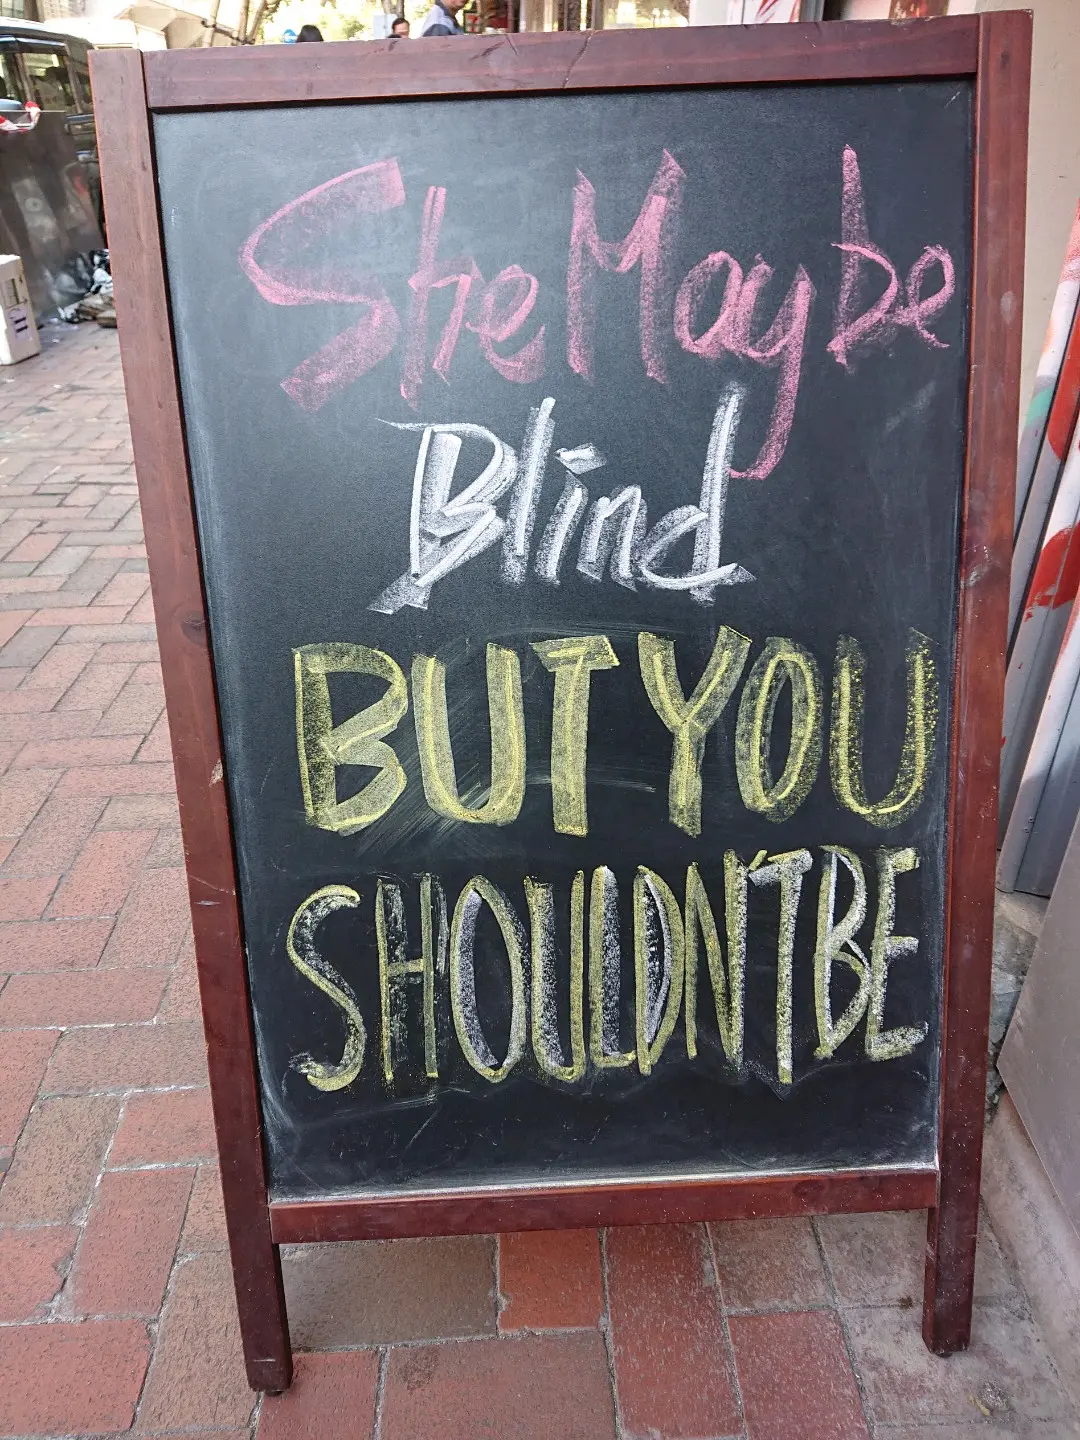 She May be
Blind
BUT YOU
SHOULDN'T BE